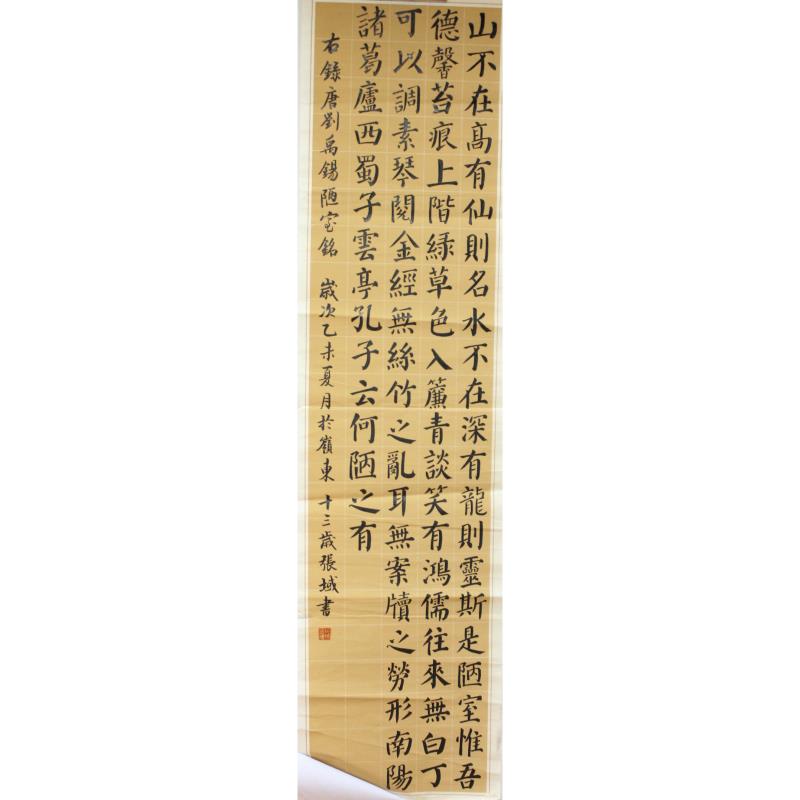 山不在高有仙則名水不在深有龍則靈斯是陋室惟吾
德馨苔痕上階緑草色入簾青談笑有鴻儒往來無白丁
可以調素琴閱金經無絲竹之亂耳無案牘之勞形南陽
諸葛廬西蜀子雲亭孔子云何陋之有
右錄唐劉禹錫陋室銘 歲次乙未夏月於嶺東 十三歲張域書